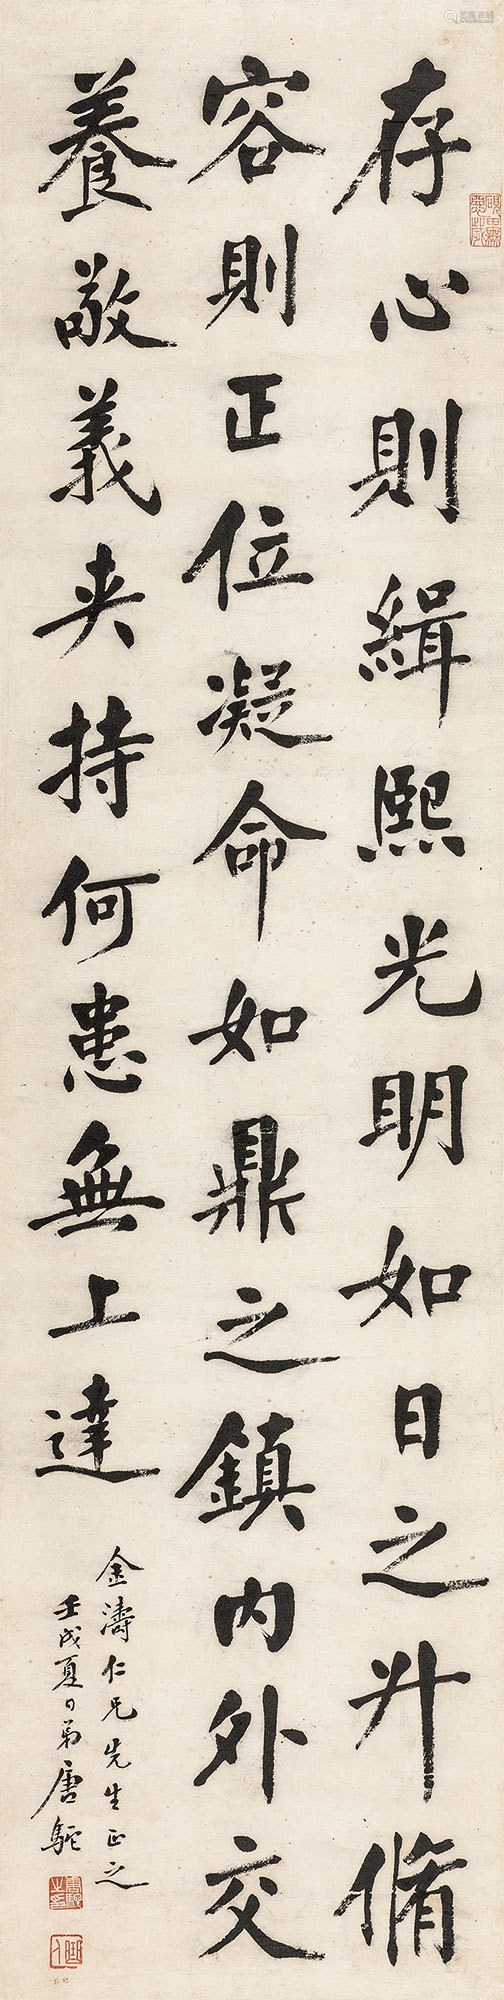 存心則緝熙光明如日之升脩
容則正位凝命如鼎之鎮內外交
養敬義夾持何患無上達
金濤仁兄先生正之
壬戌夏日弟唐駝